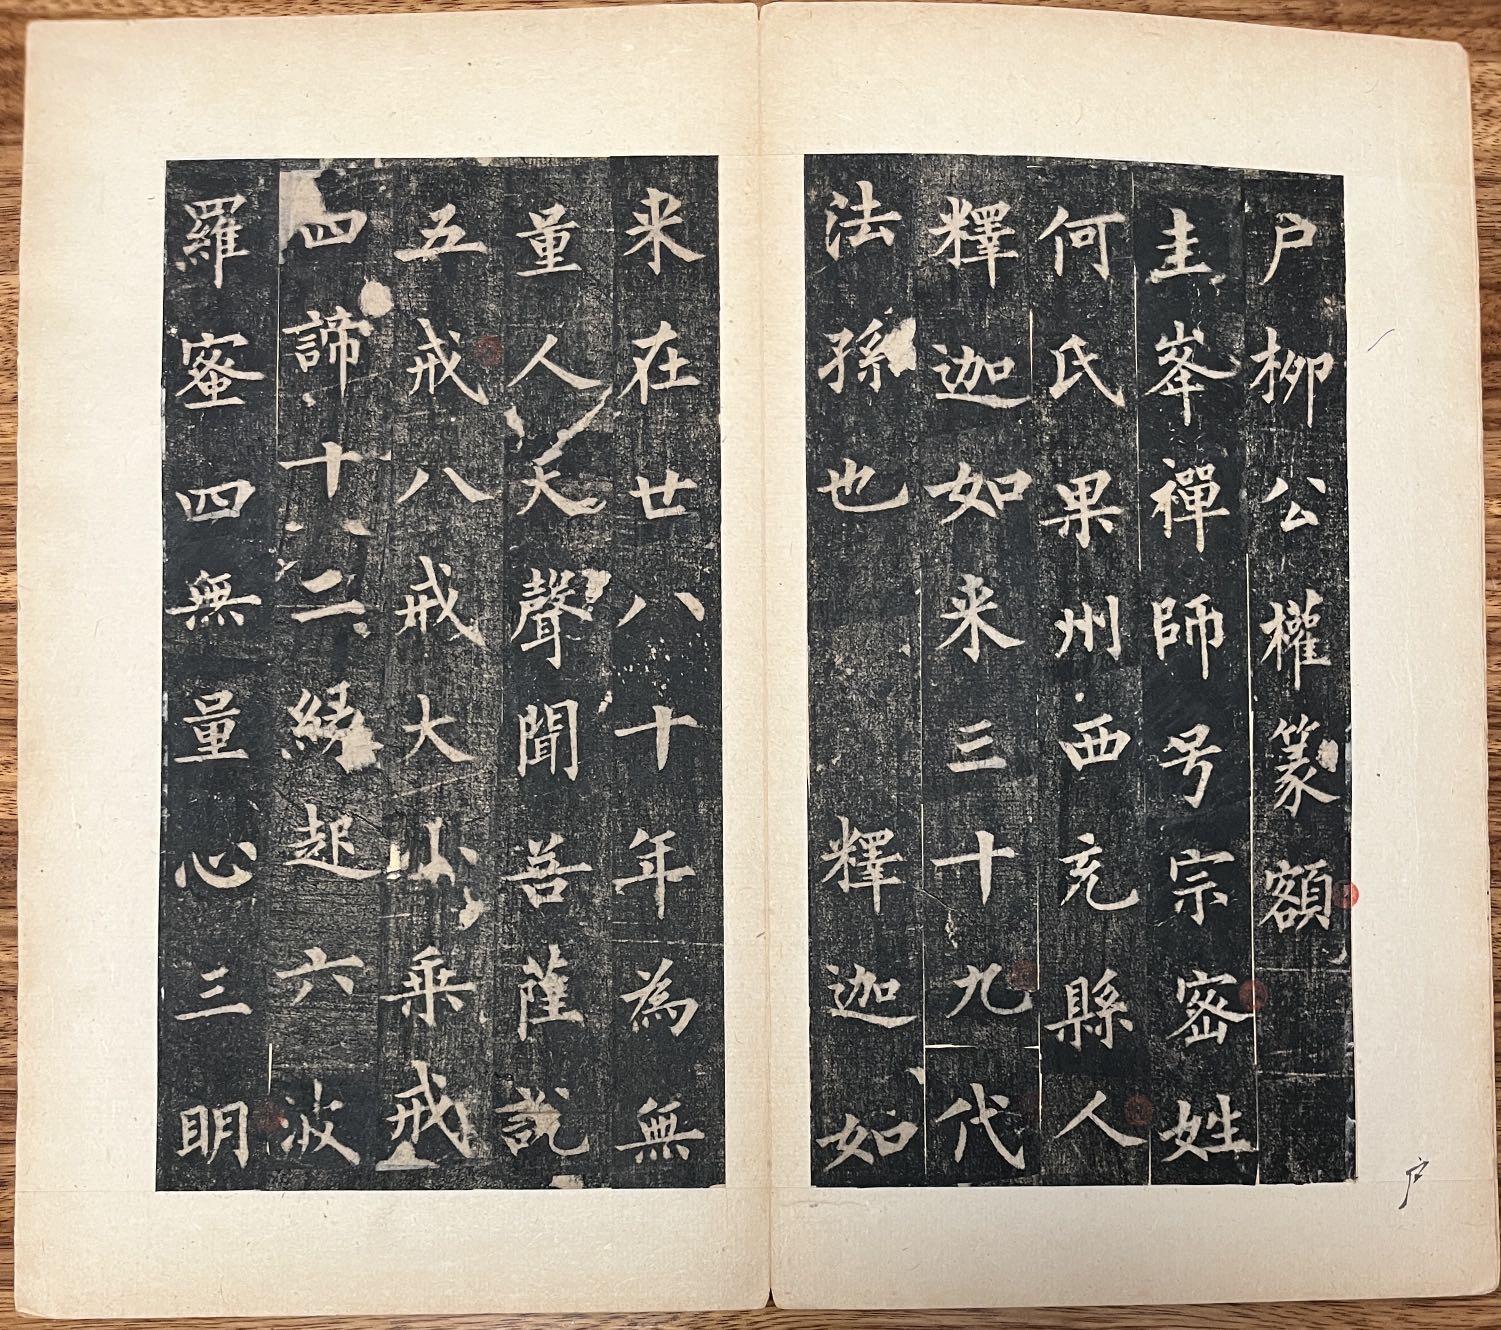 户柳公權篆額
圭峯禪師号宗密姓
何氏果州西充縣人
釋迦如来三十九代
法孫也 釋迦如
来在世八十年為無
量人天聲聞菩薩說
五戒八戒大小乘戒
四諦十二緣起六波
羅蜜四無量心三明
户